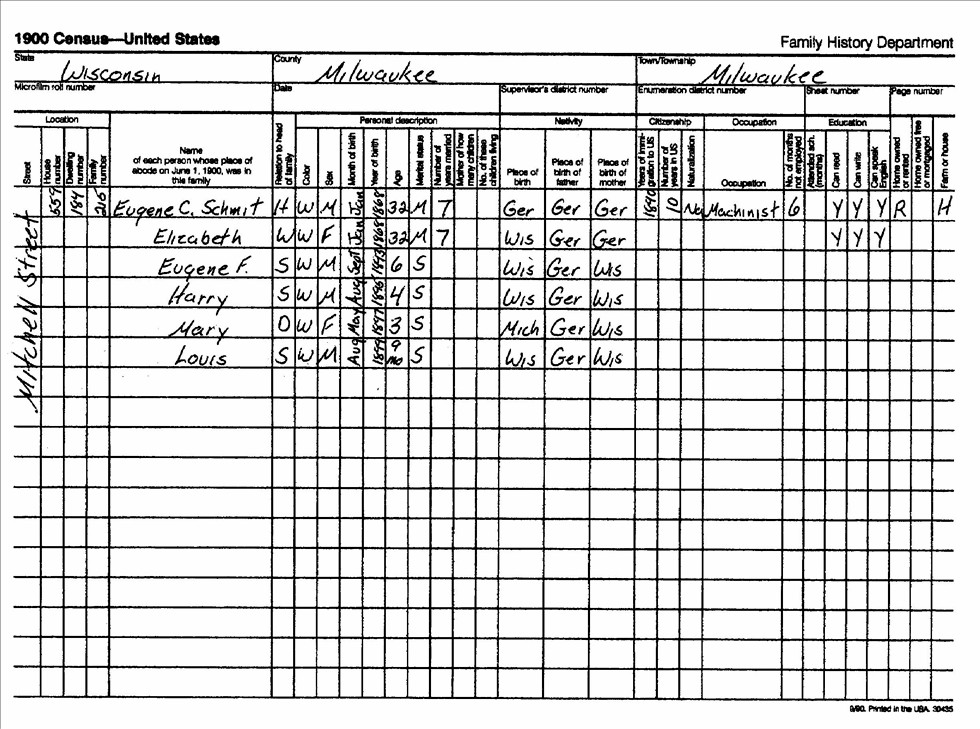 1900 Census—United States
Family History Department
State Wisconsin County Milwaukee Town/Township Milwaukee
Microfilm roll number Date Supervisor's district number Enumeration district number Sheet number Page number
Location Personal description Nativity Citizenship Occupation Education
Street House number Dwelling number Family number Name of each person whose place of abode on June 1, 1900, was in this family Relation to head of family Color Sex Month of birth Year of birth Age Marital status Number of years married Mother of how many children No. of these children living Place of birth Place of birth of father Place of birth of mother Years of immigration to US Number of years in US Naturalization Occupation No. of months not employed Attended sch. (months) Can read Can write Can speak English Home owned or rented Home owned free or mortgaged Farm or house
Mitchell Street
659 184 215 Eugene C. Schmit H W M Jan 1868 32 M 7 Ger Ger Ger 1890 10 Na Machinist 6 Y Y Y R H
Elizabeth W W F Jan 1868 32 M 7 Wis Ger Ger Y Y Y
Eugene F. S W M Sept 1893 6 S Wis Ger Wis
Harry S W M Aug 1895 4 S Wis Ger Wis
Mary D W F May 1897 3 S Mich Ger Wis
Louis S W M Aug 1899 9 mo S Wis Ger Wis
9/90. Printed in the USA. 30435